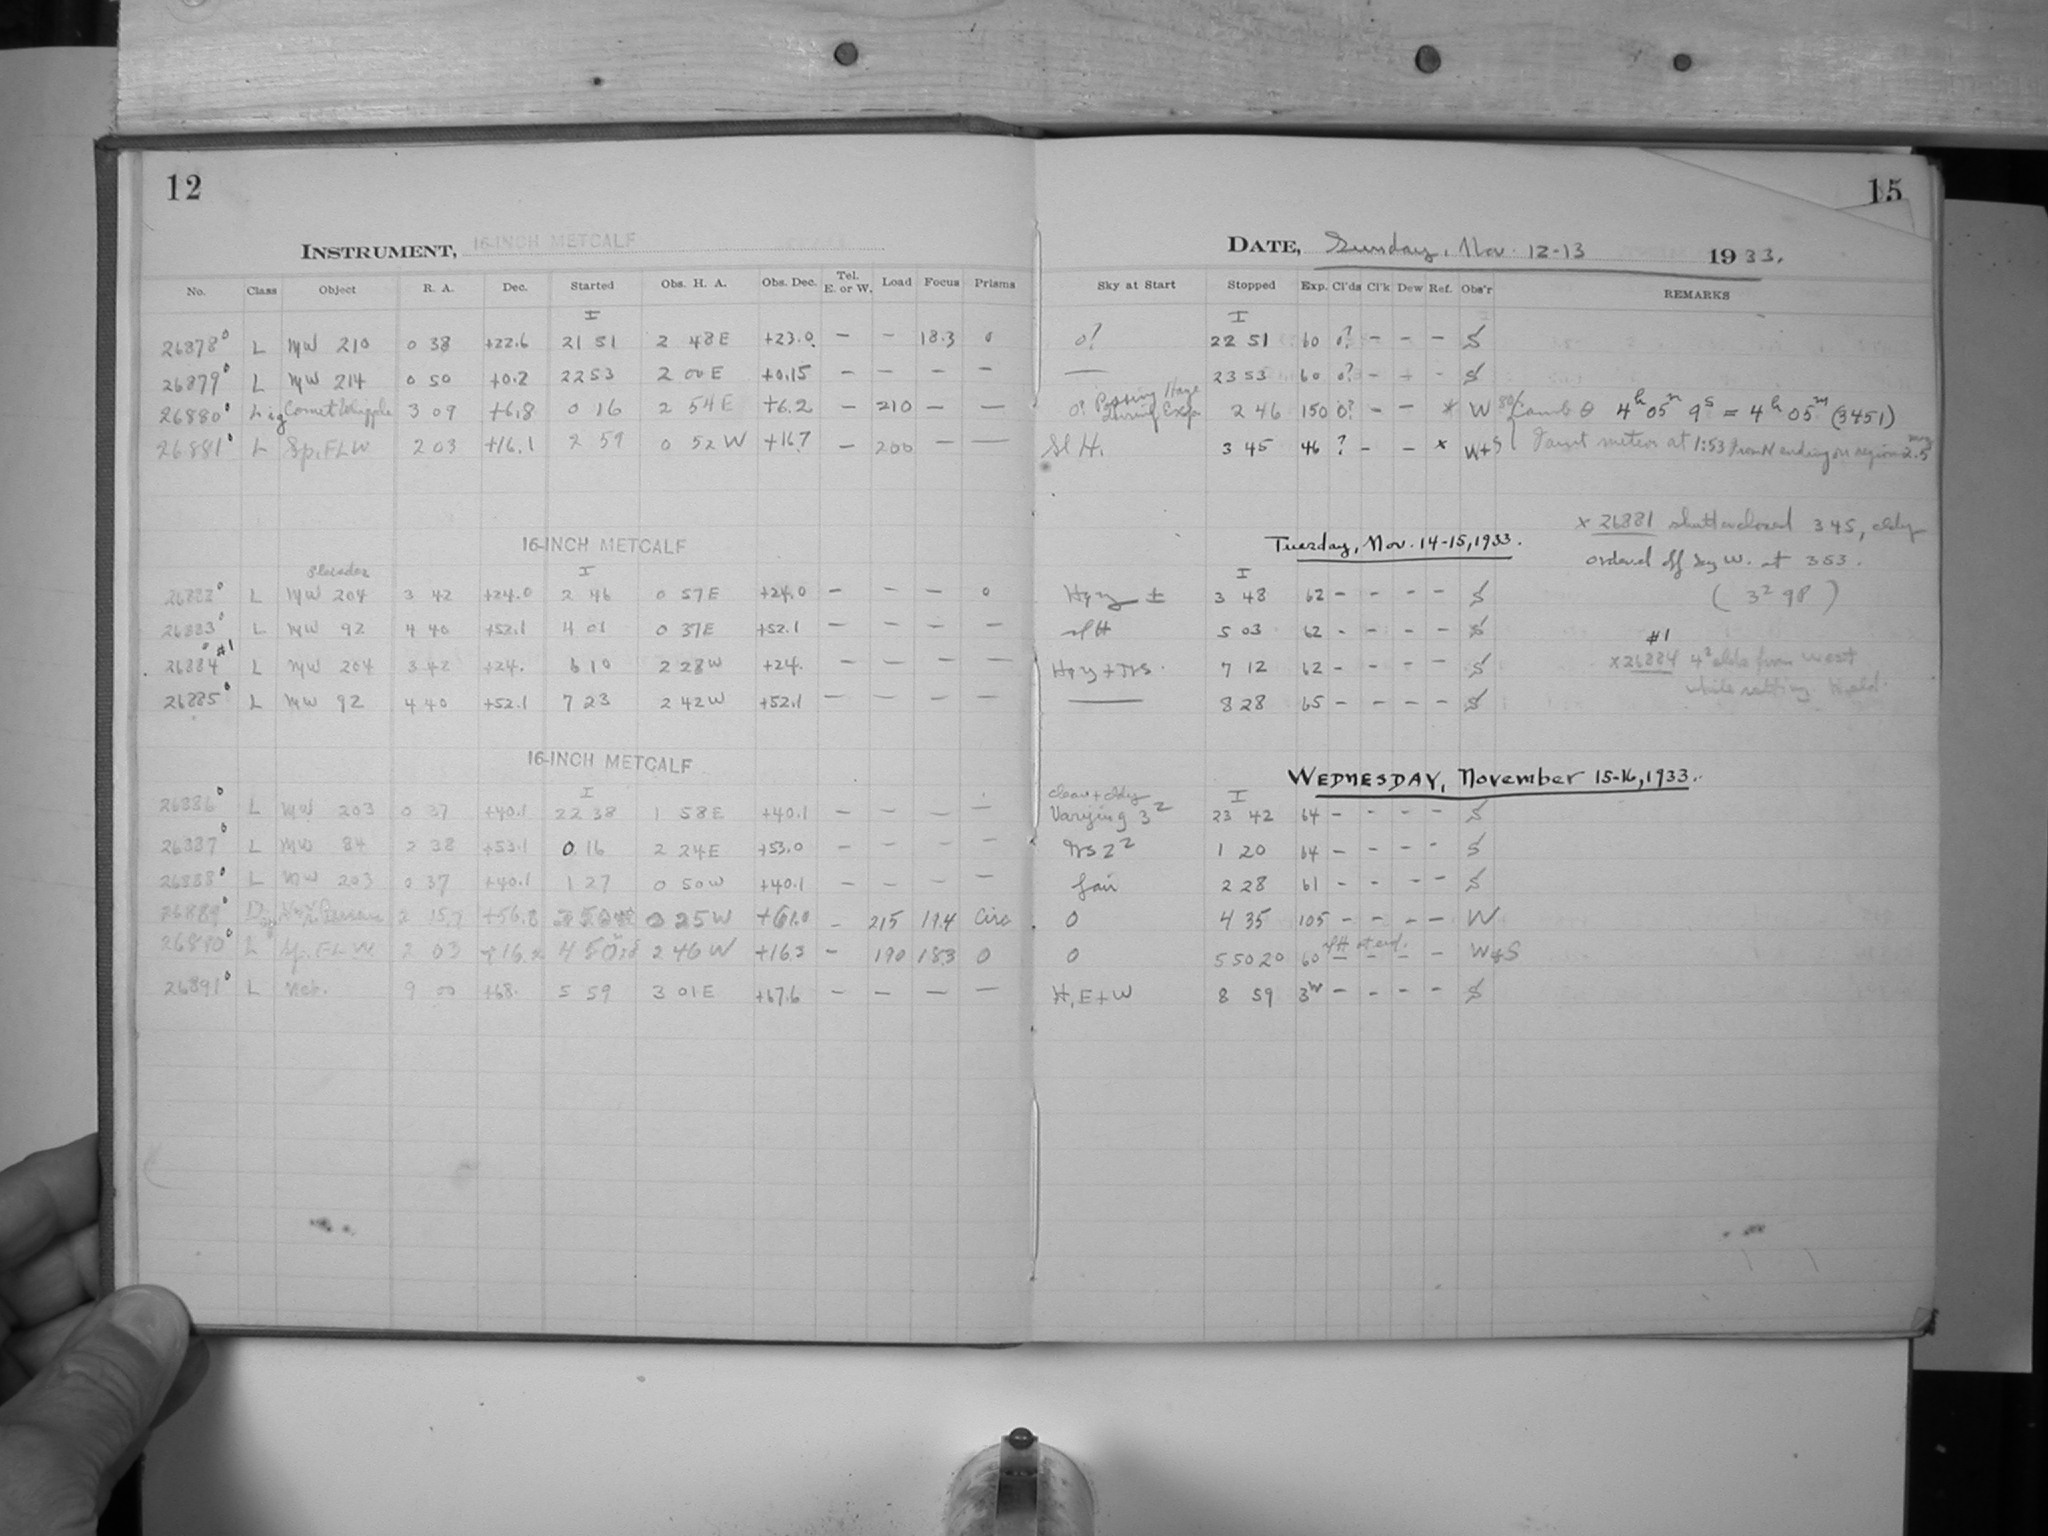 12
15
INSTRUMENT, 16-INCH METCALF
DATE, Sunday, Nov. 12-13 1933.
No. Class Object R. A. Dec. Started Obs. H. A. Obs. Dec. Tel. E. or W. Load Focus Prisms Sky at Start Stopped Exp. Cl'ds Cl'k Dew Ref. Obs'r REMARKS
I I
26878° L MW 210 0 38 +22.6 21 51 2 48 E +23.0 — — 18.3 0 0? 22 51 60 0? - - - S
26879° L MW 214 0 50 +0.2 22 53 2 00 E +0.15 — — — — — 23 53 60 0? - - - S
26880° Comet Whipple 3 09 +6.8 0 16 2 54 E +6.2 — 210 — — 0? Passing Haze During Exp. 2 46 150 0? - - * W 4h 05m 9s = 4h 05m (3451)
26881° L Sp. FLW 2 03 +16.1 2 59 0 52 W +16.7 — 200 — — Sl H. 3 45 46 ? - - x W+S Faint meteor at 1:53 from N ending on region 2.5 mag
x 26881 shutter closed 3 45, cldy
16-INCH METCALF
Tuesday, Nov. 14-15, 1933.
ordered off by W. at 353.
Pleiades I I
26882° L MW 204 3 42 +24.0 2 46 0 57 E +24.0 — — — 0 Hazy ± 3 48 62 - - - - S
26883° L MW 92 4 40 +52.1 4 01 0 37 E +52.1 — — — — sl H 5 03 62 - - - - S
26884° #1 L MW 204 3 42 +24. 6 10 2 28 W +24. — — — — Hazy + 7 12 62 - - - - S #1 x 26884 clds from West
while setting
26885° L MW 92 4 40 +52.1 7 23 2 42 W +52.1 — — — — — 8 28 65 - - - - S
16-INCH METCALF
WEDNESDAY, November 15-16, 1933.
I I
26886° L MW 203 0 37 +40.1 22 38 1 58 E +40.1 — — — — clear + cldy Varying 3² 23 42 64 - - - - S
26887° L MW 84 2 38 +53.1 0 16 2 24 E +53.0 — — — — 2² 1 20 64 - - - - S
26888° L MW 203 0 37 +40.1 1 27 0 50 W +40.1 — — — — fair 2 28 61 - - - - S
26889° 2 15.7 +56.8 0 25 W +61.0 - 215 19.4 Circ 0 4 35 105 - - - - W
26890° L Sp. FLW 2 03 +16.2 2 46 W +16.3 — 190 18.3 0 0 5 50 20 60 sl H at end. W+S
26891° L Neb. 9 00 +68. 5 59 3 01 E +67.6 — — — — H, E+W 8 59 3h - - - - S